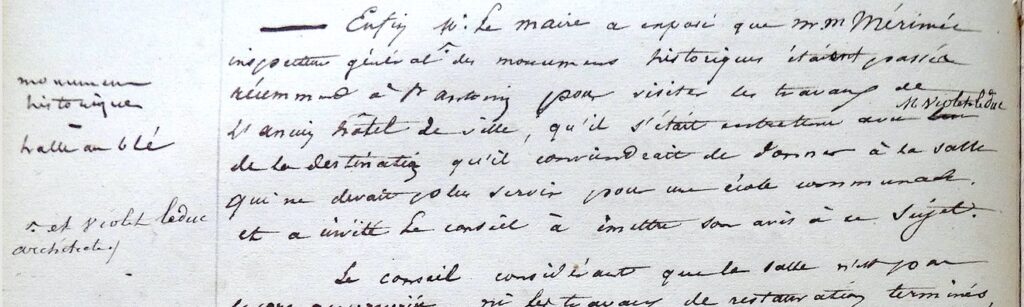 monumens
historiques
—
halle au blé
r. et Violet leduc
architecte
— Enfin Mr. Le maire a exposé que m.m Mérimée
inspecteur général r. des monumens historiques était passé
récemment à St antonin pour visiter les travaux de
M. Violet leduc
L'ancien hôtel de ville, qu'il s'était entretenu avec lui
de la destination qu'il conviendrait de donner à la salle
qui ne devait plus servir pour une école communale.
et a invité Le conseil à émettre son avis à ce Sujet.
Le conseil considérant que la salle n'est pas
ni les travaux de restauration terminés,